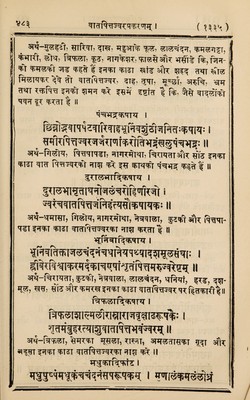 ४८३ वातपित्तज्वरप्रकरणम् । (१३३५)
अर्थ-मुलहठी, सारिवा, दाख, महुआके फूल, लालचंदन, कमलगट्टा,
कंभारी, लोध, त्रिफला, कूट, नागकेशर, फालसे और भसींडे कि, जिन-
को कमलकी जड़ कहते हैं इनका काढा खांड और शहद तथा खील
मिलायकर देवे तो वातपित्तज्वर, दाह, तृषा, मूर्च्छा, अरुचि, भ्रम
तथा रक्तपित्त इनकी शमन करे इसमें दृष्टांत है कि, जैसे बादलोंको
पवन दूर करता है ॥
पंचभद्रकषाय ।
छिन्नोद्भवापर्पटवारिवाहभूनिंबशुंठीजनितःकषायः ।
समीरपित्तज्वरजर्जराणांकरोतिभद्रंखलुपंचभद्रः ॥
अर्थ-गिलोय, पित्तपापडा, नागरमोथा, चिरायता और सोंठ इनका
काढा वात पित्तज्वरको नाश करे इस काथको पंचभद्र कहते हैं ॥
दुरालभादिकषाय ।
दुरालभामृताघनोजलंचरोहिणीरजो ।
ज्वरंचवातपित्तजंनिहंत्यसौकषायकः ॥
अर्थ-धमासा, गिलोय, नागरमोथा, नेत्रवाला, कुटकी और पित्तपा-
पडा इनका काढा वातपित्तज्वरको नाश करता है ॥
भूनिंबादिकषाय ।
भूनिंबतिक्ताजलचंदनंचधान्येयपथ्यादशमूलसंघाः ।
अर्थ-चिरायता, कुटकी, नेत्रवाला, लालचंदन, धनियां, हरड, दश-
मूल, खस, सोंठ और कमरख इनका काढा वात पित्तज्वर पर हितकारी है॥
त्रिफलादिकषाय ।
त्रिफलाशाल्मलीरास्नाराजवृक्षाटरूषकैः ।
शृतमंबुहरत्याशुवातपित्तभवंज्वरम् ॥
अर्थ-त्रिफला, सेमरका मूसला, रास्ना, अमलतासका गूदा और
अडूसा इनका काढा वातपित्तज्वरका नाश करे ॥
मधुकादिकाढा ।
मधुपुष्पंमधूकंचचंदनंसपरूषकम् ।